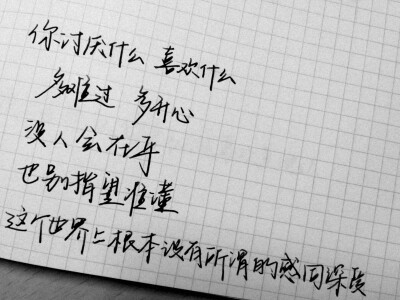 你讨厌什么 喜欢什么
多难过 多开心
没人会在乎
也别指望谁懂
这个世界上根本没有所谓的感同深受